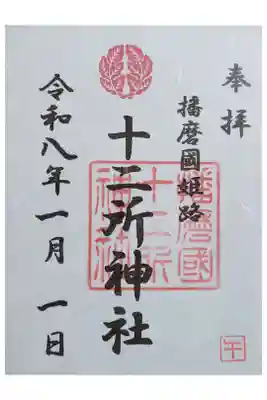 奉拝
播磨國姫路
十二所神社
播磨國
十二所
神社
令和八年一月一日
午